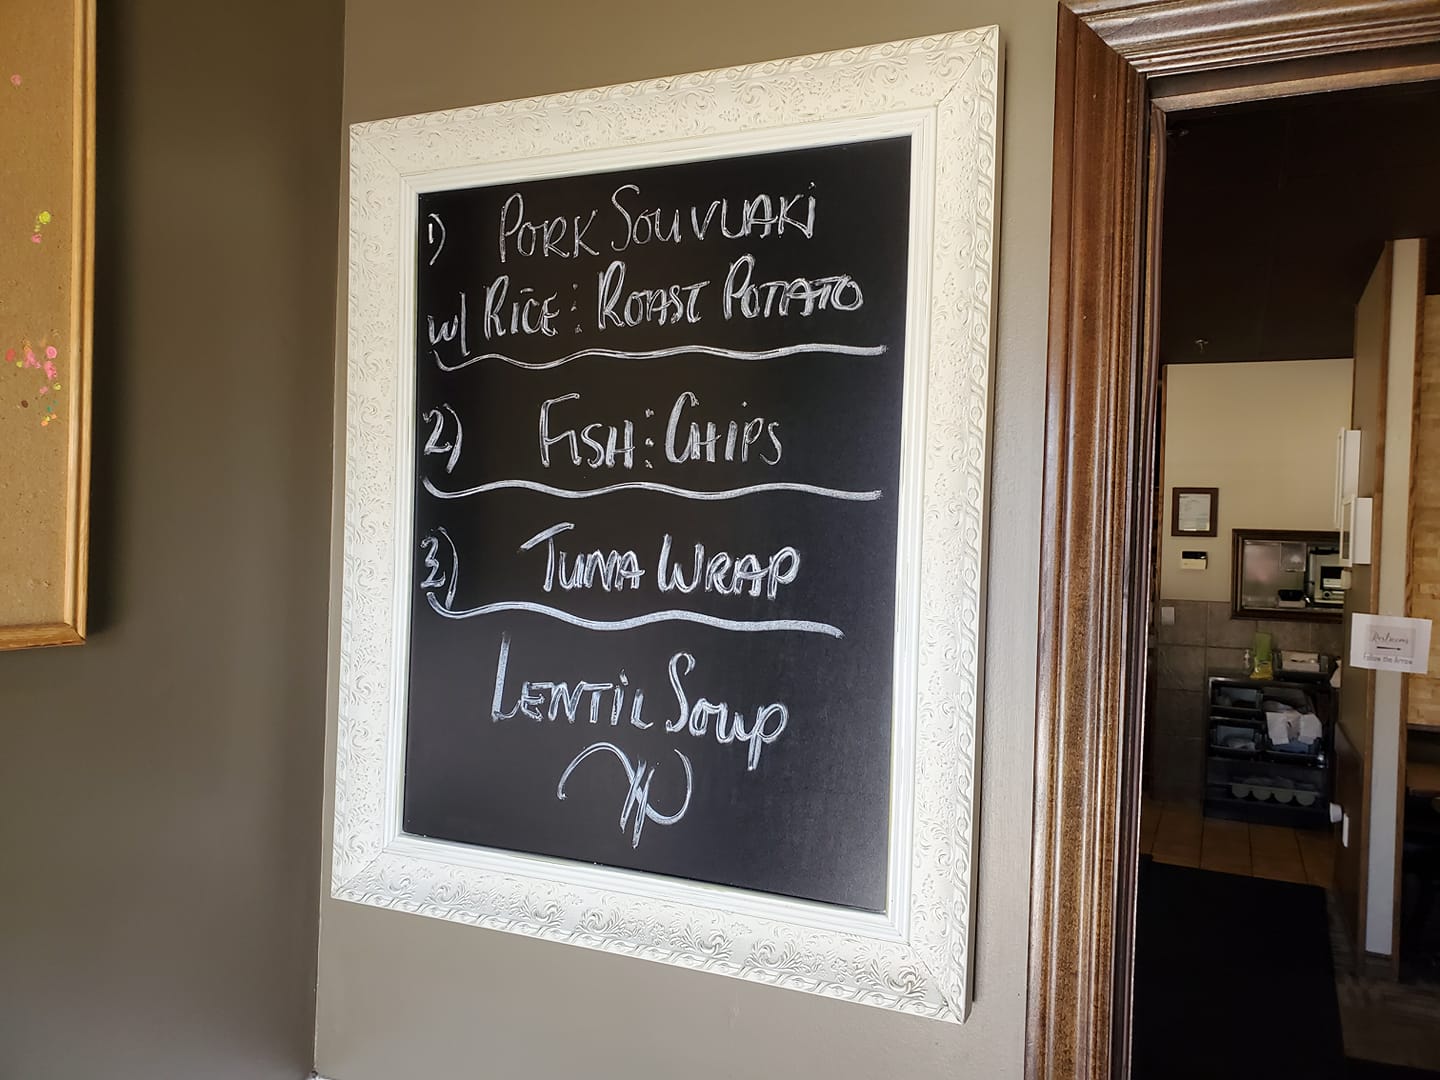 1) PORK SOUVLAKI
w/ RICE : ROAST POTATO
2) FISH : CHIPS
3) TUNA WRAP
LENTIL SOUP
Restrooms
Follow the Arrow